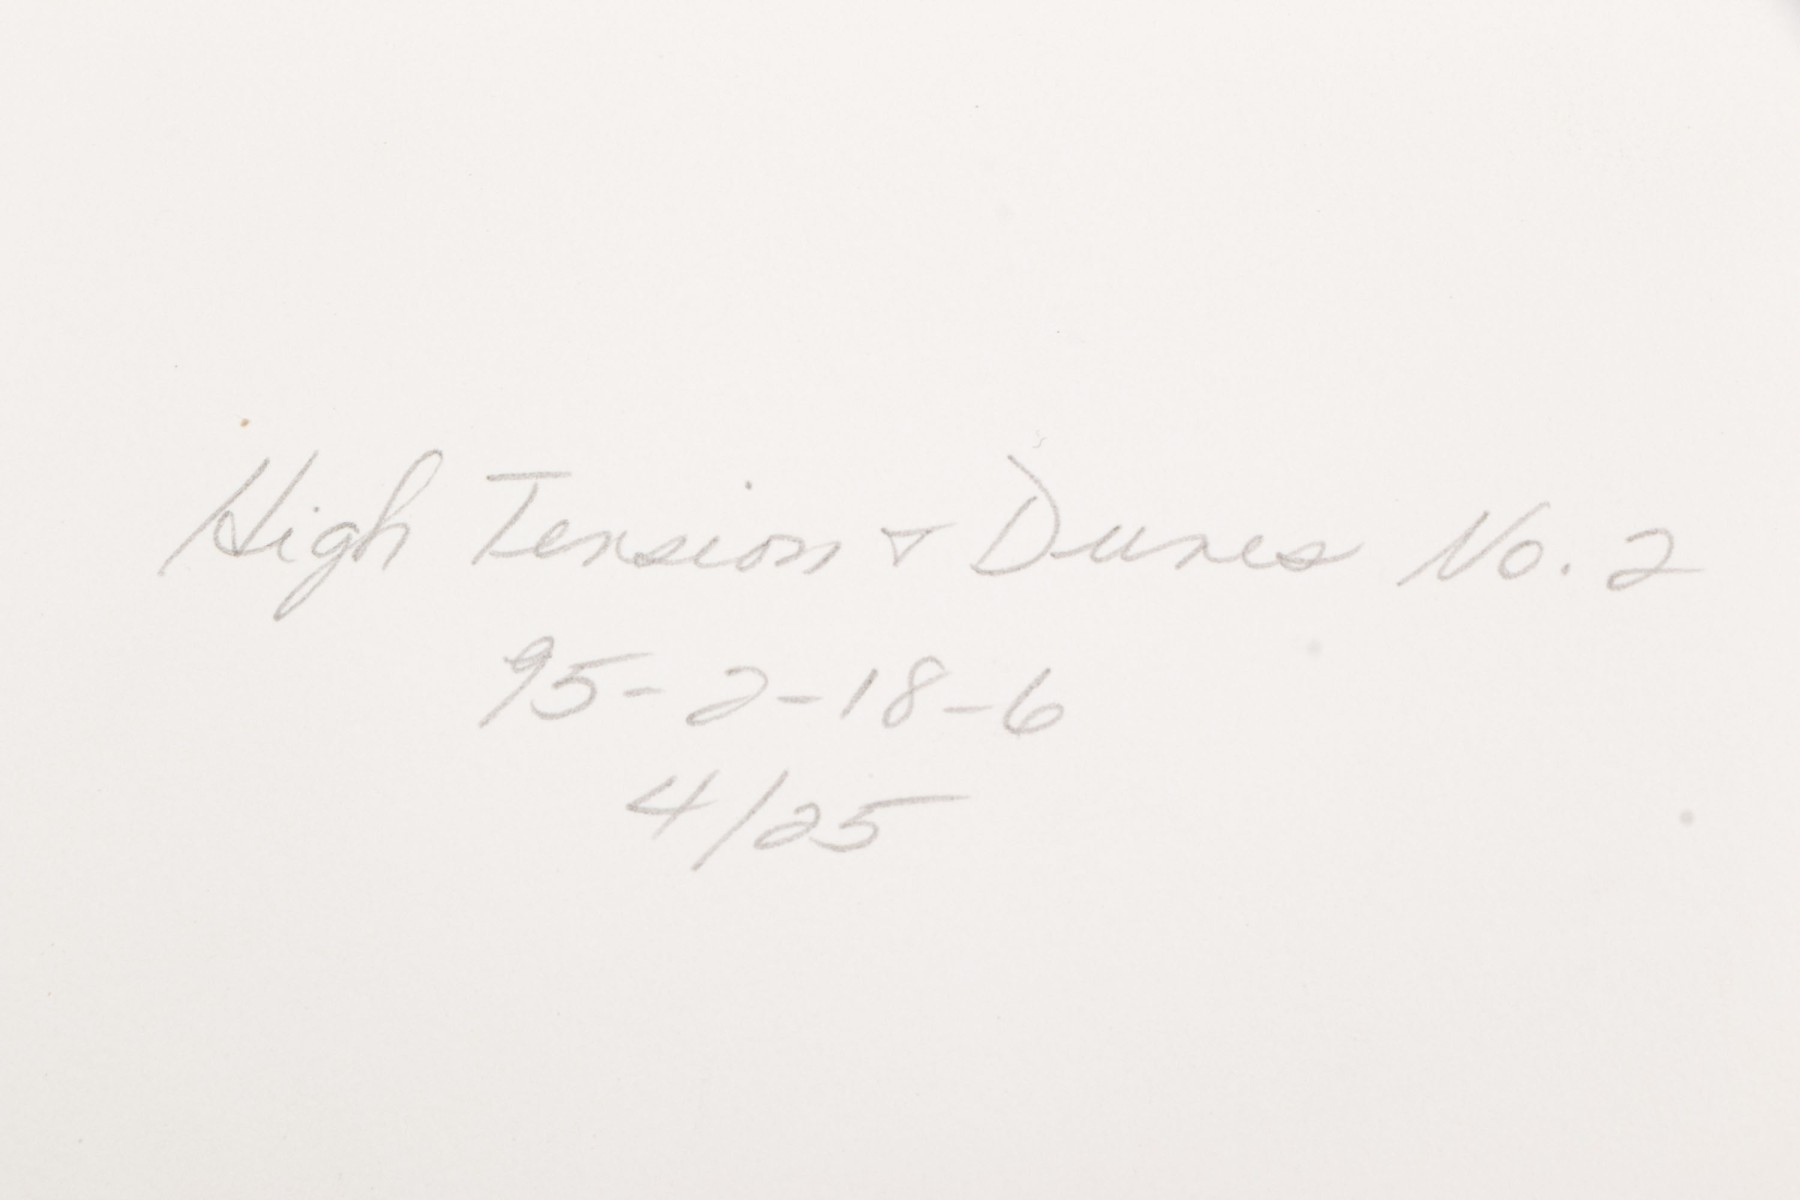 High Tension & Dunes No. 2
95-2-18-6
4/25